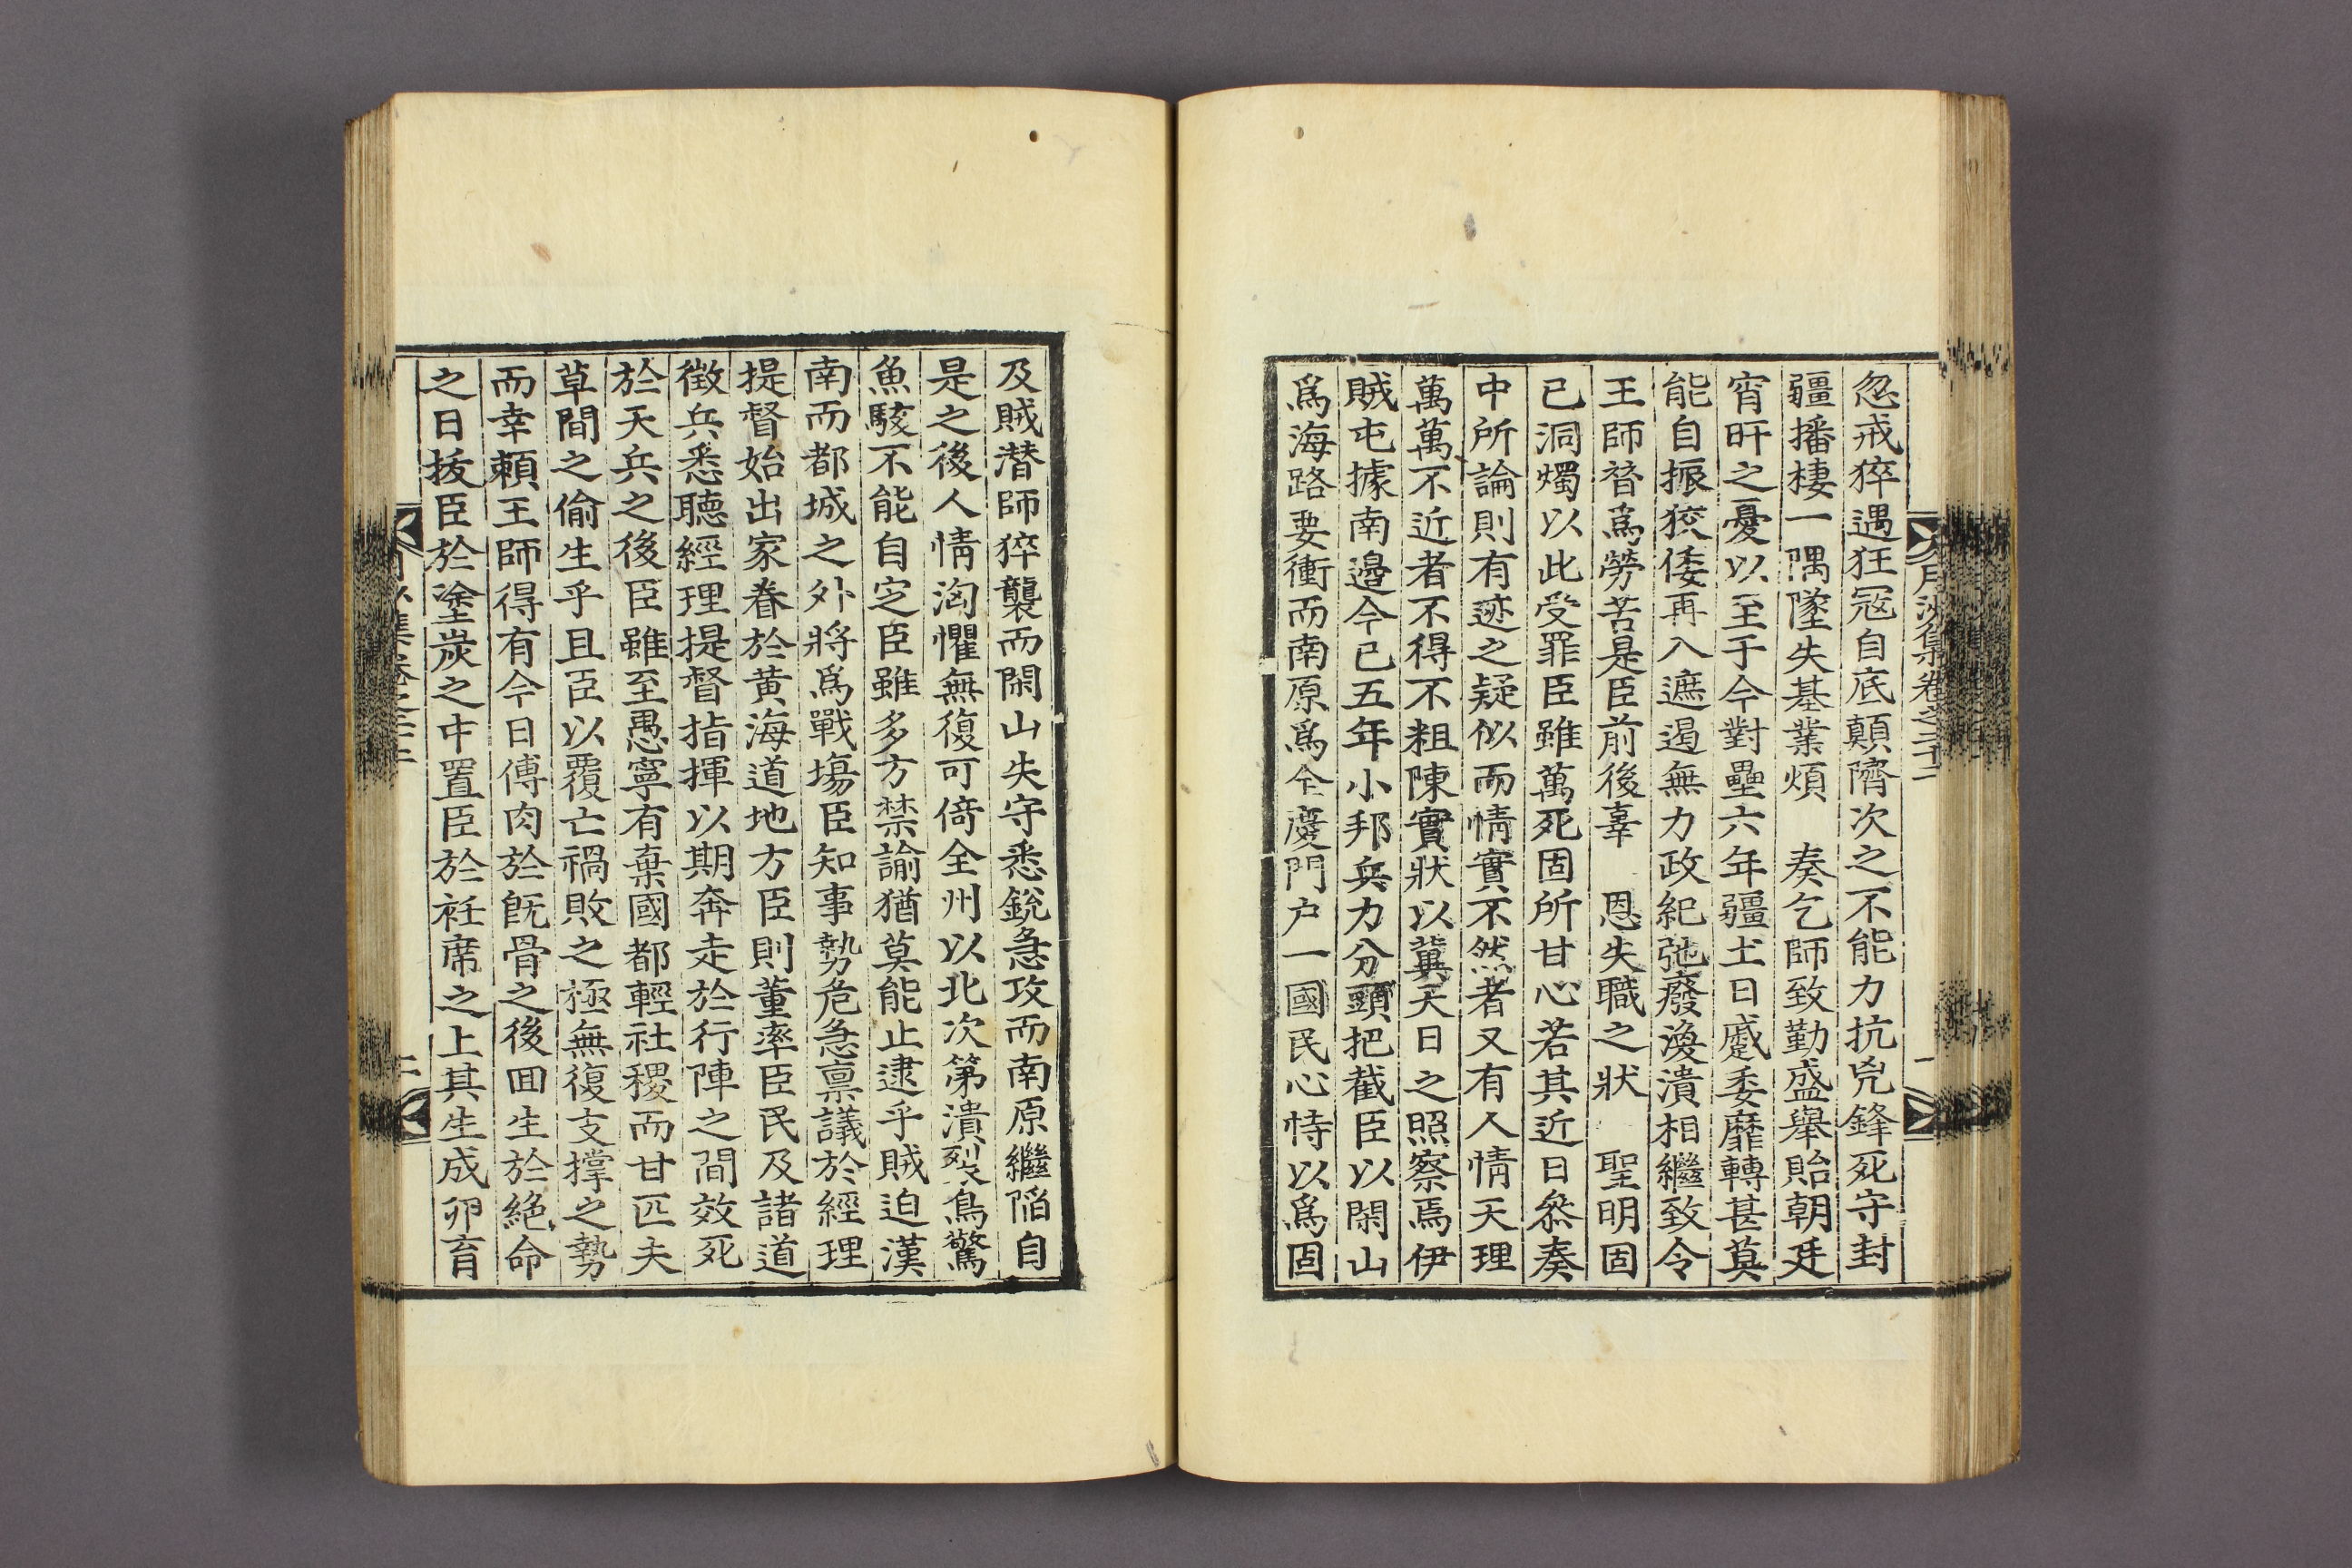 月沙集卷之二十二
忽戒猝遇狂寇自底顛隮次之不能力抗兇鋒死守封
疆播棲一隅墜失基業煩　奏乞師致勤盛舉貽朝廷
宵旰之憂以至于今對壘六年疆土日蹙委靡轉甚莫
能自振狡倭再入遮遏無力政紀弛廢渙潰相繼致令
王師替爲勞苦是臣前後辜　恩失職之狀　聖明固
已洞燭以此受罪臣雖萬死固所甘心若其近日叅奏
中所論則有迹之疑似而情實不然者又有人情天理
萬萬不近者不得不粗陳實狀以冀天日之照察焉伊
賊屯據南邊今已五年小邦兵力分頭把截臣以閑山
爲海路要衝而南原爲全慶門户一國民心恃以爲固
及賊潜師猝襲而閑山失守悉銳急攻而南原繼陷自
是之後人情洶懼無復可倚全州以北次第潰裂鳥驚
魚駭不能自定臣雖多方禁諭猶莫能止逮乎賊迫漢
南而都城之外將爲戰塲臣知事勢危急禀議於經理
提督始出家眷於黄海道地方臣則董率臣民及諸道
徵兵悉聽經理提督指揮以期奔走於行陣之間效死
於天兵之後臣雖至愚寧有棄國都輕社稷而甘匹夫
草間之偷生乎且臣以覆亡禍敗之極無復支撑之勢
而幸賴王師得有今日傅肉於旣骨之後回生於絶命
之日拔臣於塗炭之中置臣於衽席之上其生成卵育